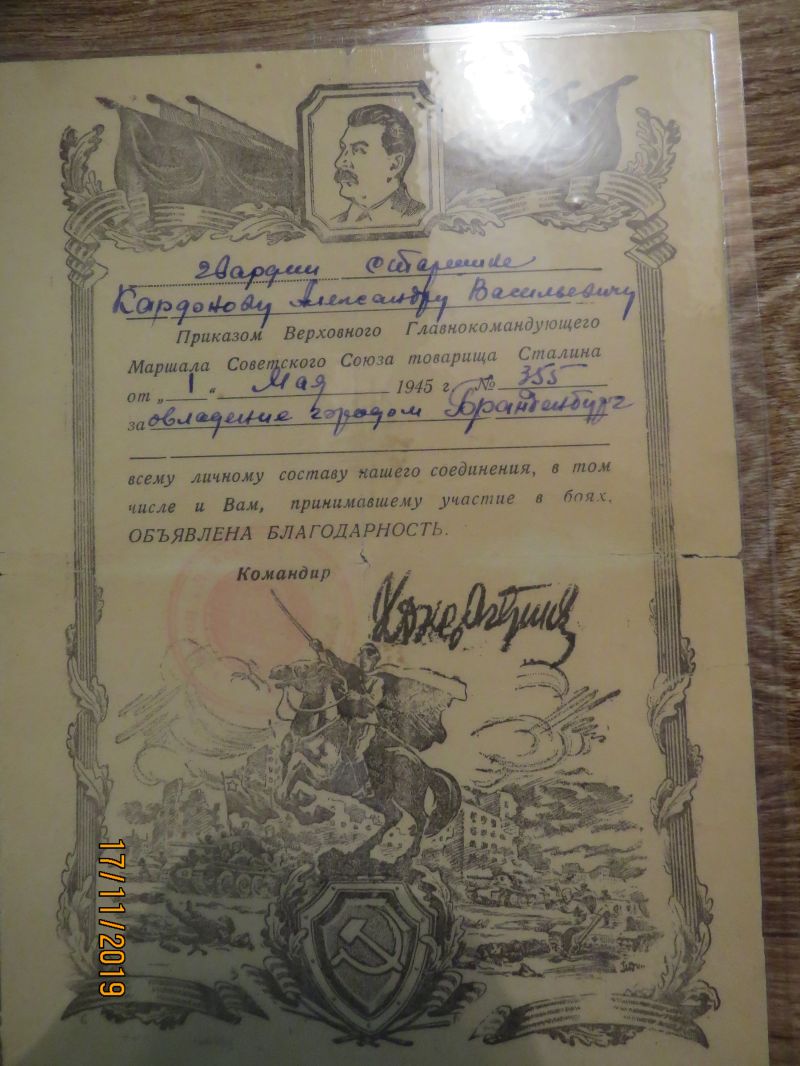 гвардии старшине
Кардонову Александру Васильевичу
Приказом Верховного Главнокомандующего
Маршала Советского Союза товарища Сталина
от „1“ Мая 1945 г. № 355
за овладение городом Бранденбург
всему личному составу нашего соединения, в том
числе и Вам, принимавшему участие в боях,
ОБЪЯВЛЕНА БЛАГОДАРНОСТЬ.
Командир
17/11/2019